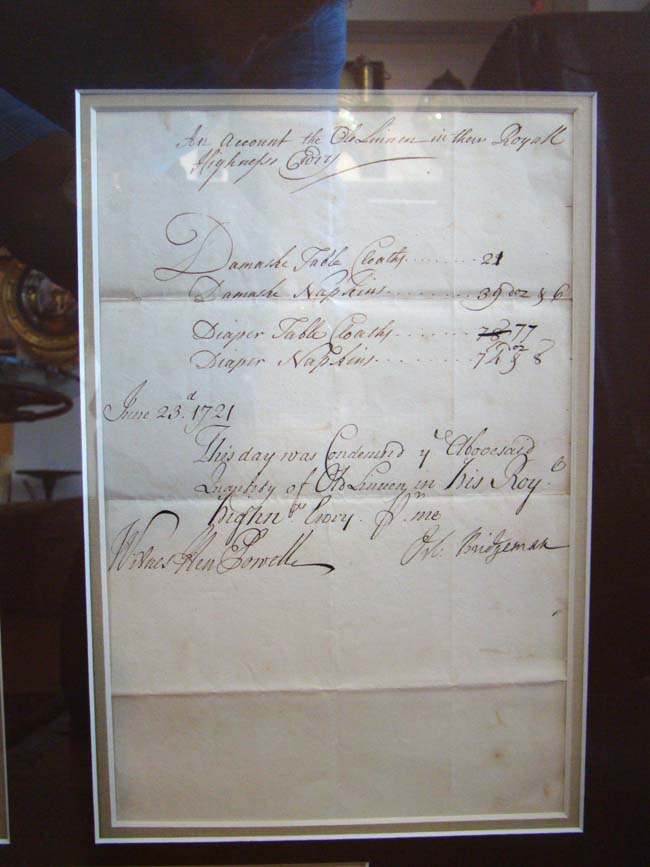 An Account the Old Linnen in their Royall
Highness Ewry
Damaske Table Cloaths 21
Damaske Napkins 39 doz & 6
Diaper Table Cloaths 77
Diaper Napkins & 8
June 23.d 1721
This day was Condemned ye Abovesaid
Quantity of Old Linnen in his Roy.ll
Highn.ss Ewry. Pr. me
Witnes Hen Powell Bridgeman